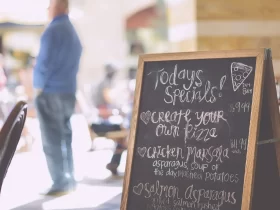 Today's
Specials!
Create Your
Own Pizza
$9.99
Chicken Marsala
asparagus, soup of
the day, mashed potatoes
Salmon Asparagus